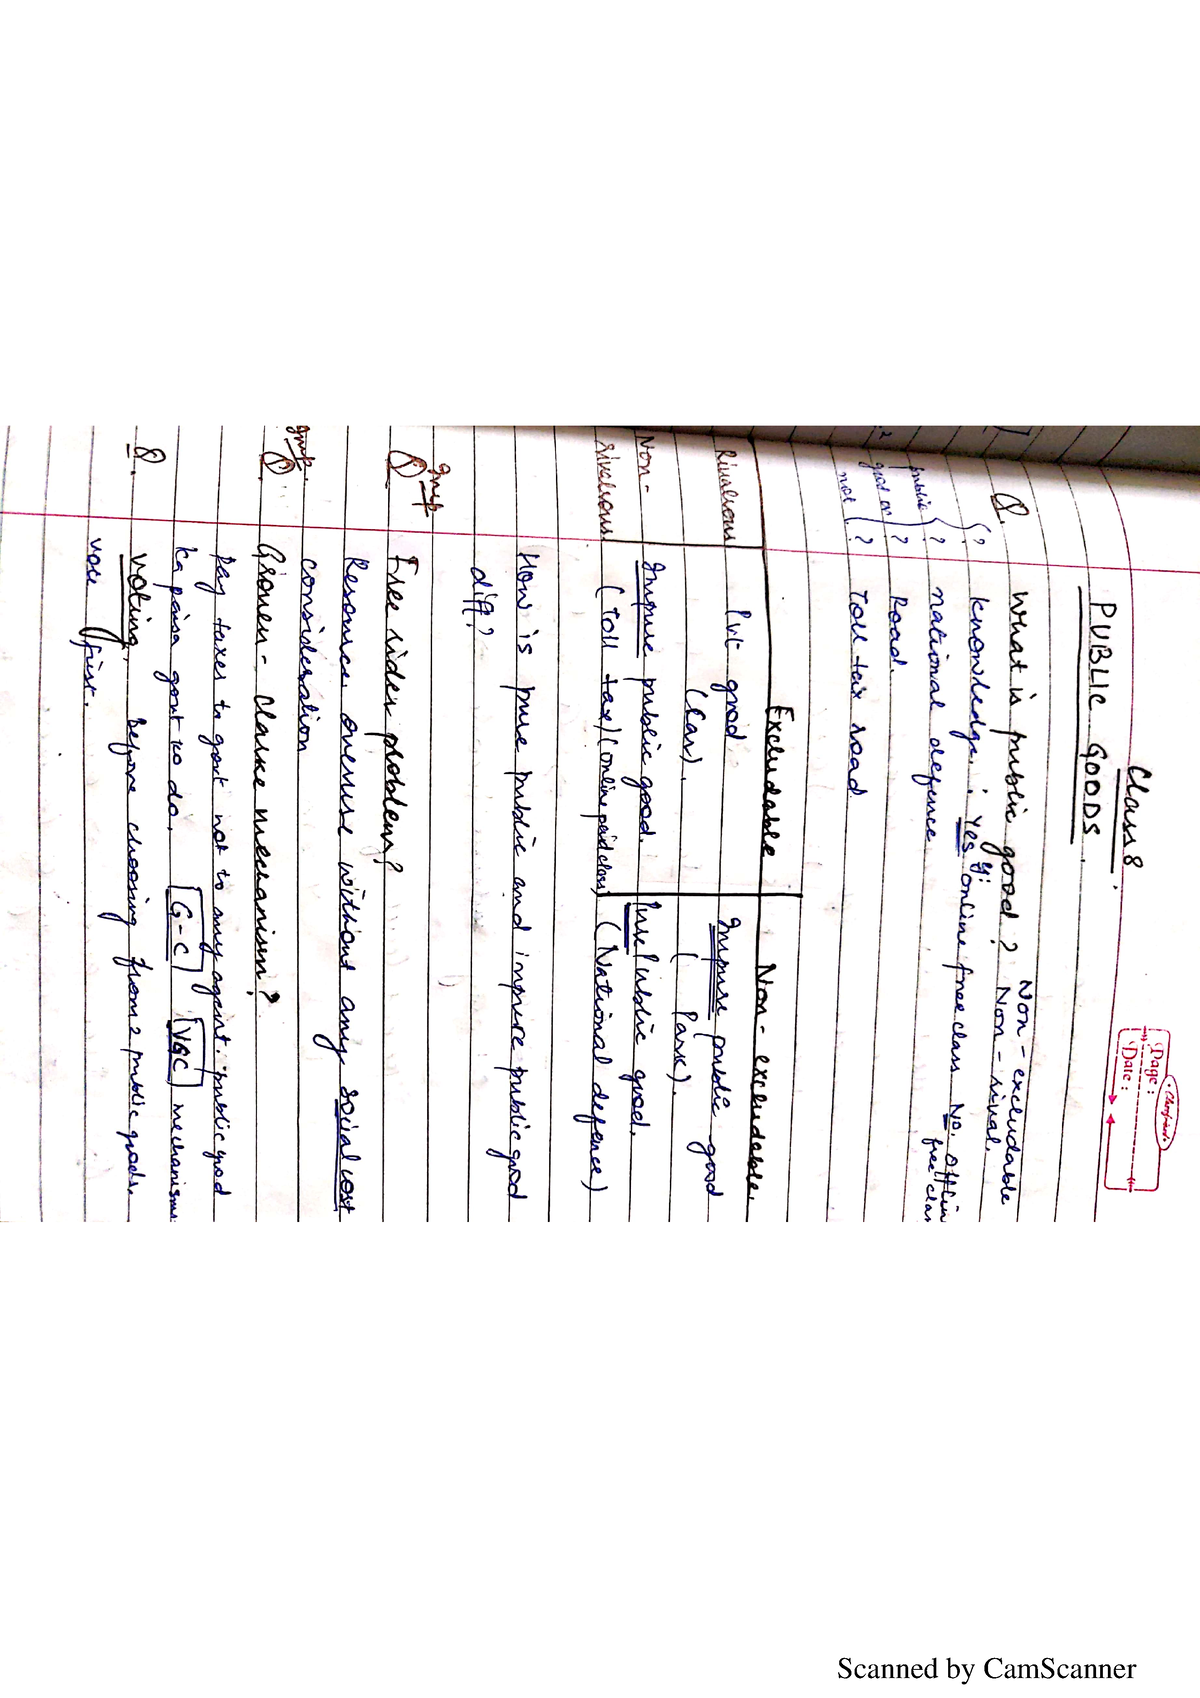 Classmate
Page :
Date :
Class 8.
PUBLIC GOODS.
Q. What is public good? Non-excludable
Non-rival.
{? knowledge. : Yes if: online free class No. offlin
free clas
public {? national defence
good or {? Road.
not {? Toll tax road.
Excludable Non-excludable.
Rivalrous Pvt good Impure public good
(Car). (Park).
Non- Impure public good. Pure Public good.
rivalrous (Toll tax)(online paid class) (National defence)
How is pure public and impure public good
diff?
imp
Q Free rider problem?
Resource overuse without any social cost
consideration
imp
Q. Groven-Clarke mechanism?
Pay taxes to govt not to any agent. public good
ka paisa govt ko do. [G-C] [VGC] mechanisms
Q. Voting, before choosing from 2 public goods.
vote first.
Scanned by CamScanner